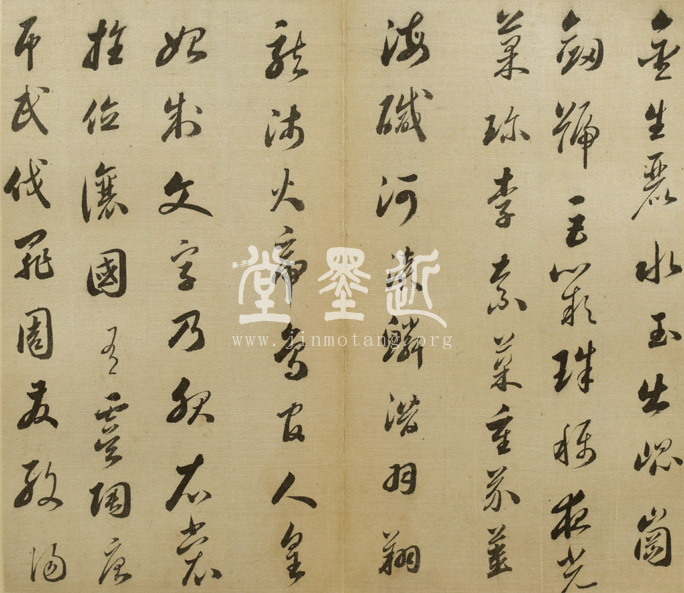 金生麗水玉出崐崗
劍號巨闕珠稱夜光
菓珍李柰菜重芥薑
海鹹河淡鱗潛羽翔
龍師火帝鳥官人皇
始制文字乃服衣裳
推位讓國有虞陶唐
弔民伐罪周發殷湯
近墨堂
www.jinmotang.org